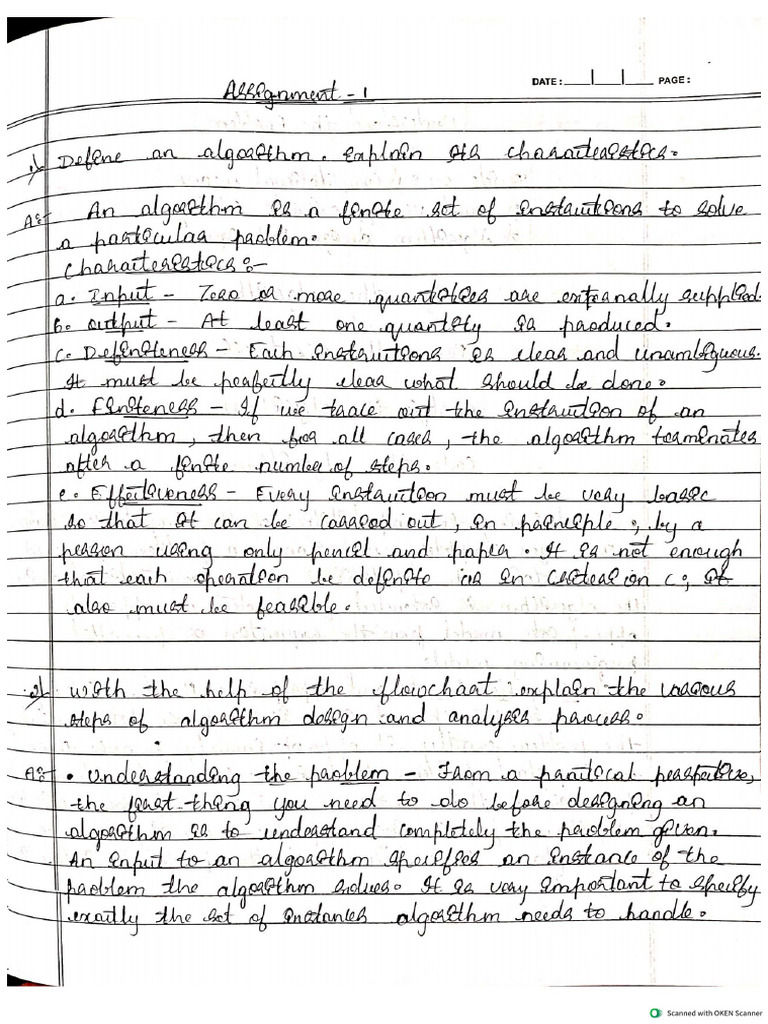 DATE: PAGE:
Assignment - 1
1) Define an algorithm. Explain its characteristics.
A:- An algorithm is a finite set of instructions to solve
a particular problem.
Characteristics :-
a. Input - Zero or more quantities are externally supplied.
b. output - At least one quantity is produced.
c. Definiteness - Each instructions is clear and unambiguous.
It must be perfectly clear what should be done.
d. Finiteness - If we trace out the instruction of an
algorithm, then for all cases, the algorithm terminates
after a finite number of steps.
e. Effectiveness - Every instruction must be very basic
so that it can be carried out, in principle, by a
person using only pencil and paper. It is not enough
that each operation be definite as in criterion c; it
also must be feasible.
2) With the help of the flowchart explain the various
steps of algorithm design and analysis process.
A:- • Understanding the problem - From a practical perspective,
the first thing you need to do before designing an
algorithm is to understand completely the problem given.
An input to an algorithm specifies an instance of the
problem the algorithm solves. It is very important to specify
exactly the set of instances algorithm needs to handle.
Scanned with OKEN Scanner